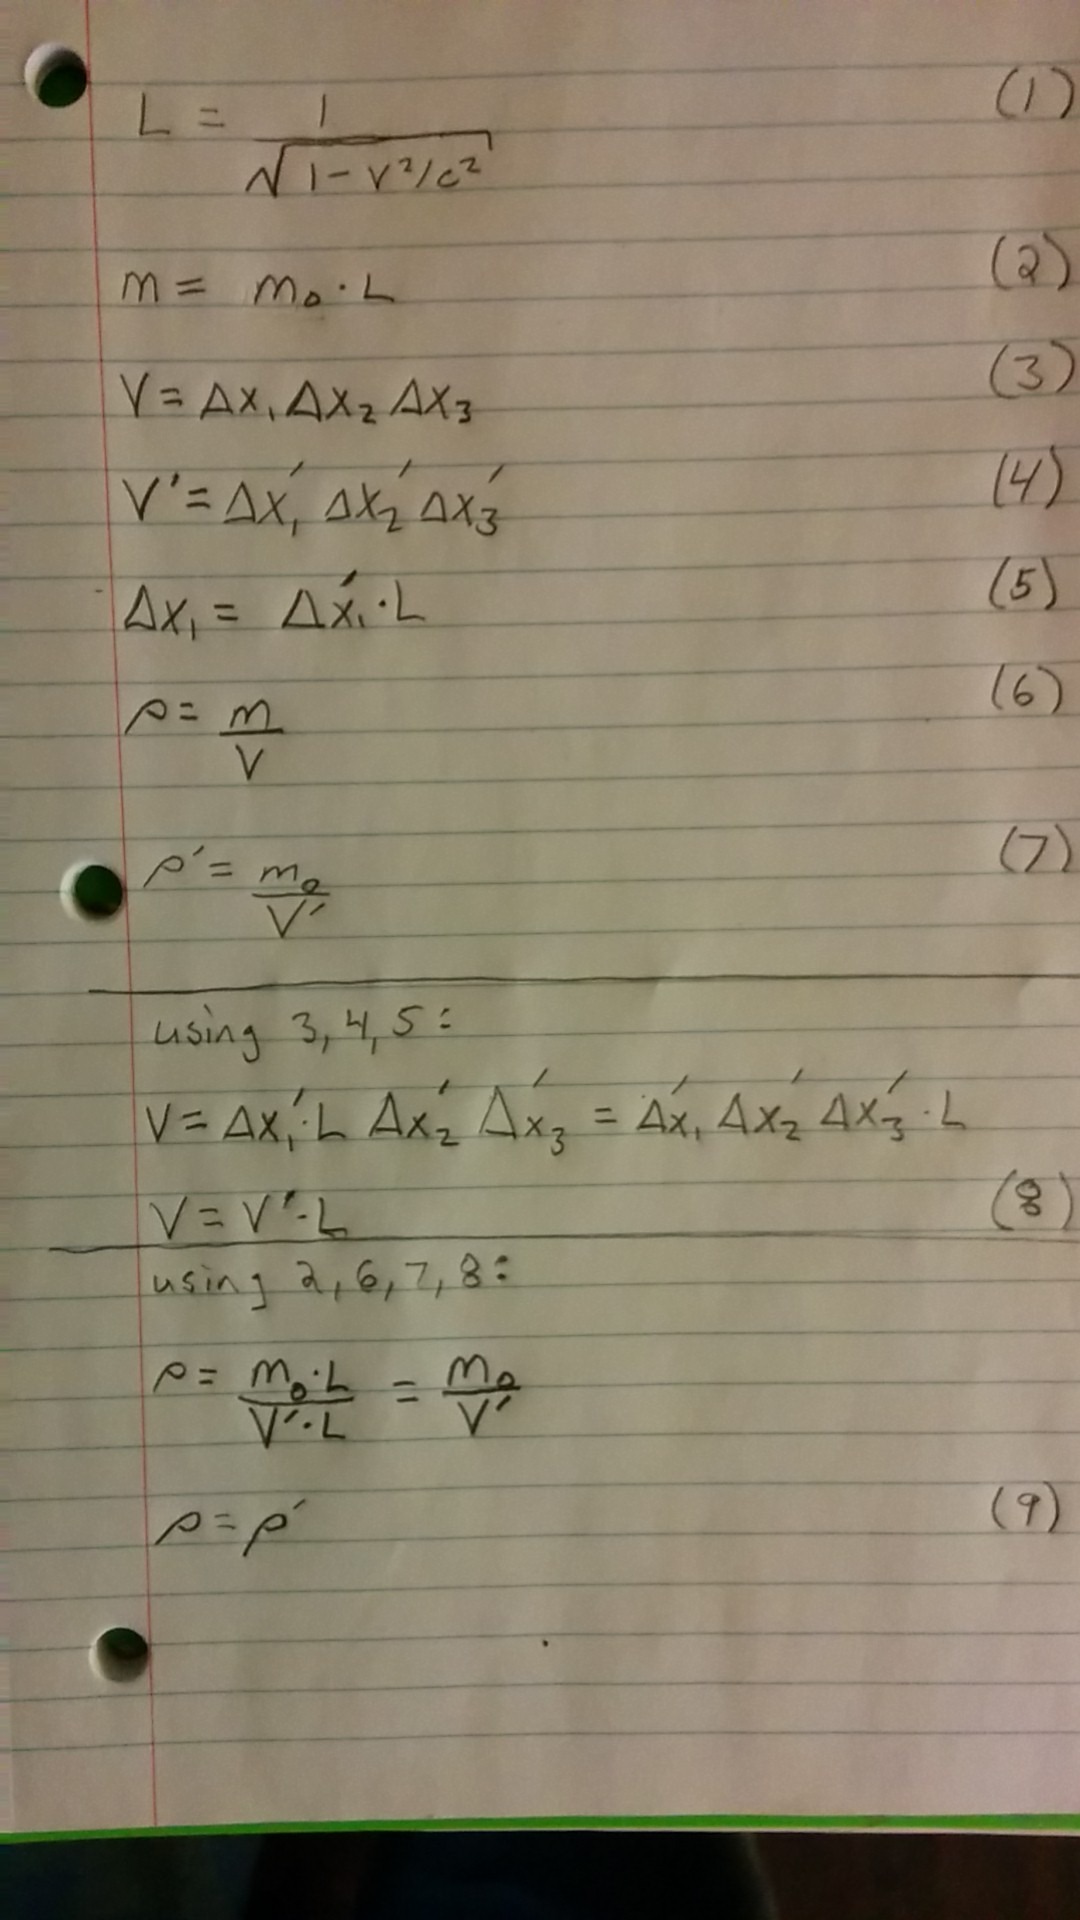 L = 1 / √(1 - v²/c²) (1)
m = m₀ · L (2)
V = Δx₁ Δx₂ Δx₃ (3)
V' = Δx₁' Δx₂' Δx₃' (4)
Δx₁ = Δx₁' · L (5)
ρ = m / V (6)
ρ' = m₀ / V' (7)
using 3, 4, 5:
V = Δx₁' · L Δx₂' Δx₃' = Δx₁' Δx₂' Δx₃' · L
V = V' · L (8)
using 2, 6, 7, 8:
ρ = m₀ · L / V' · L = m₀ / V'
ρ = ρ' (9)